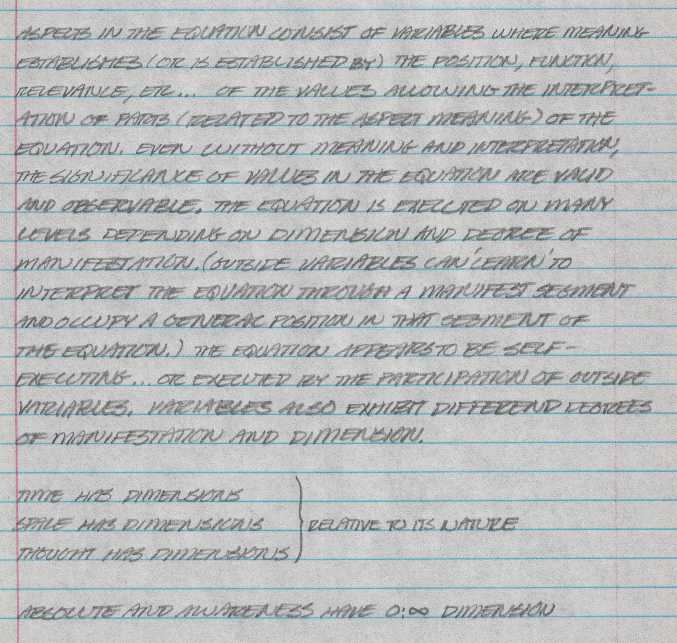 ASPECTS IN THE EQUATION CONSIST OF VARIABLES WHERE MEANING
ESTABLISHES (OR IS ESTABLISHED BY) THE POSITION, FUNCTION,
RELEVANCE, ETC... OF THE VALUES ALLOWING THE INTERPRET-
ATION OF PARTS (RELATED TO THE ASPECT MEANING) OF THE
EQUATION. EVEN WITHOUT MEANING AND INTERPRETATION,
THE SIGNIFICANCE OF VALUES IN THE EQUATION ARE VALID
AND OBSERVABLE. THE EQUATION IS EXECUTED ON MANY
LEVELS DEPENDING ON DIMENSION AND DEGREE OF
MANIFESTATION. (OUTSIDE VARIABLES CAN 'LEARN' TO
INTERPRET THE EQUATION THROUGH A MANIFEST SEGMENT
AND OCCUPY A GENERAL POSITION IN THAT SEGMENT OF
THE EQUATION.) THE EQUATION APPEARS TO BE SELF-
EXECUTING... OR EXECUTED BY THE PARTICIPATION OF OUTSIDE
VARIABLES. VARIABLES ALSO EXHIBIT DIFFEREND DEGREES
OF MANIFESTATION AND DIMENSION.
TIME HAS DIMENSIONS
SPACE HAS DIMENSIONS
RELATIVE TO ITS NATURE
THOUGHT HAS DIMENSIONS
ABSOLUTE AND AWARENESS HAVE 0:∞ DIMENSION